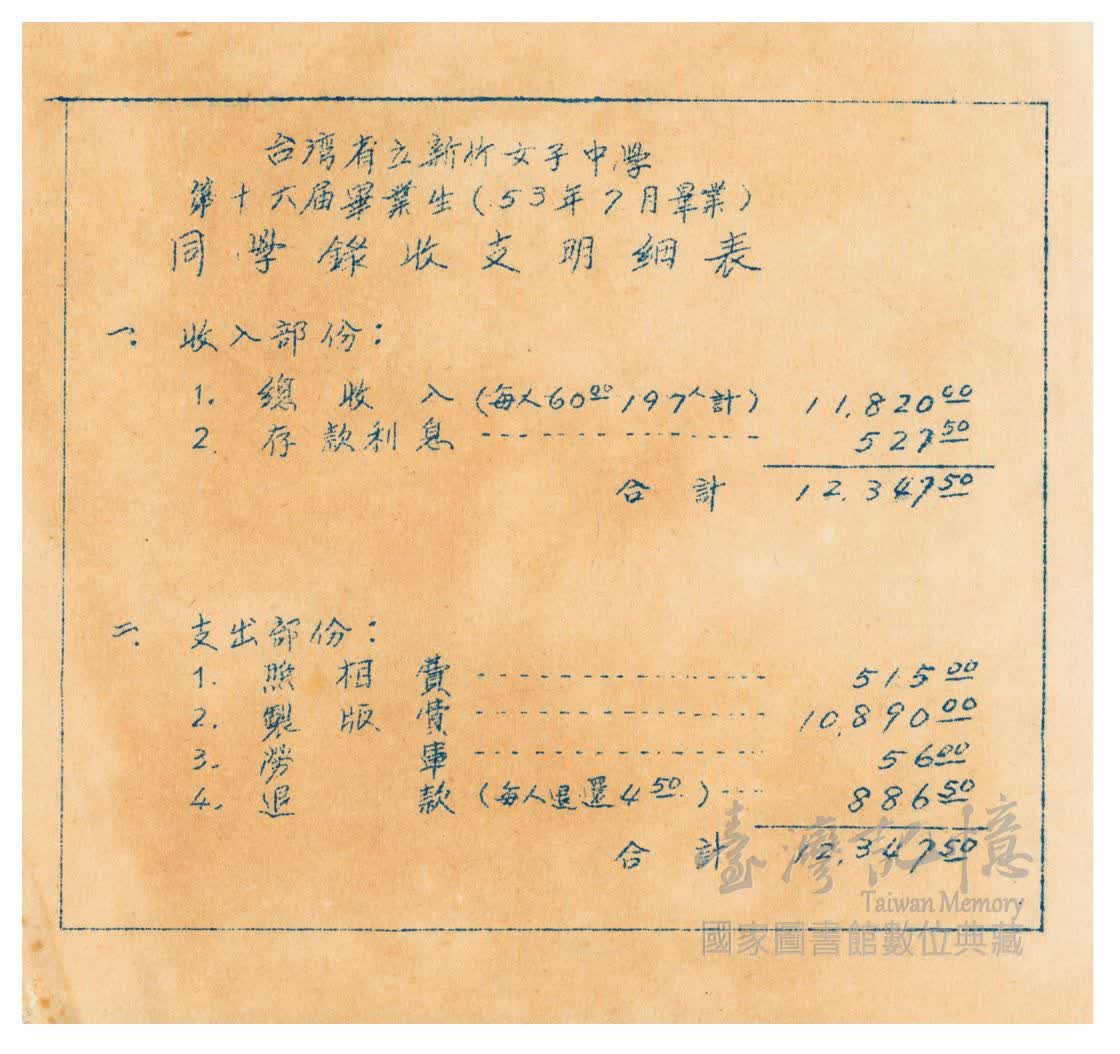 台湾省立新竹女子中學
第十六届畢業生(53年7月畢業)
同學錄收支明細表
一. 收入部份:
1. 總收入 (每人60.00 197人計) 11,820.00
2. 存款利息 ---------------- 527.50
合計 12,347.50
二. 支出部份:
1. 照相費 ---------------- 515.00
2. 製版費 ---------------- 10,890.00
3. 勞軍 ---------------- 56.00
4. 退款 (每人退還4.50) --- 886.50
合計 12,347.50
臺灣記憶
Taiwan Memory
國家圖書館數位典藏